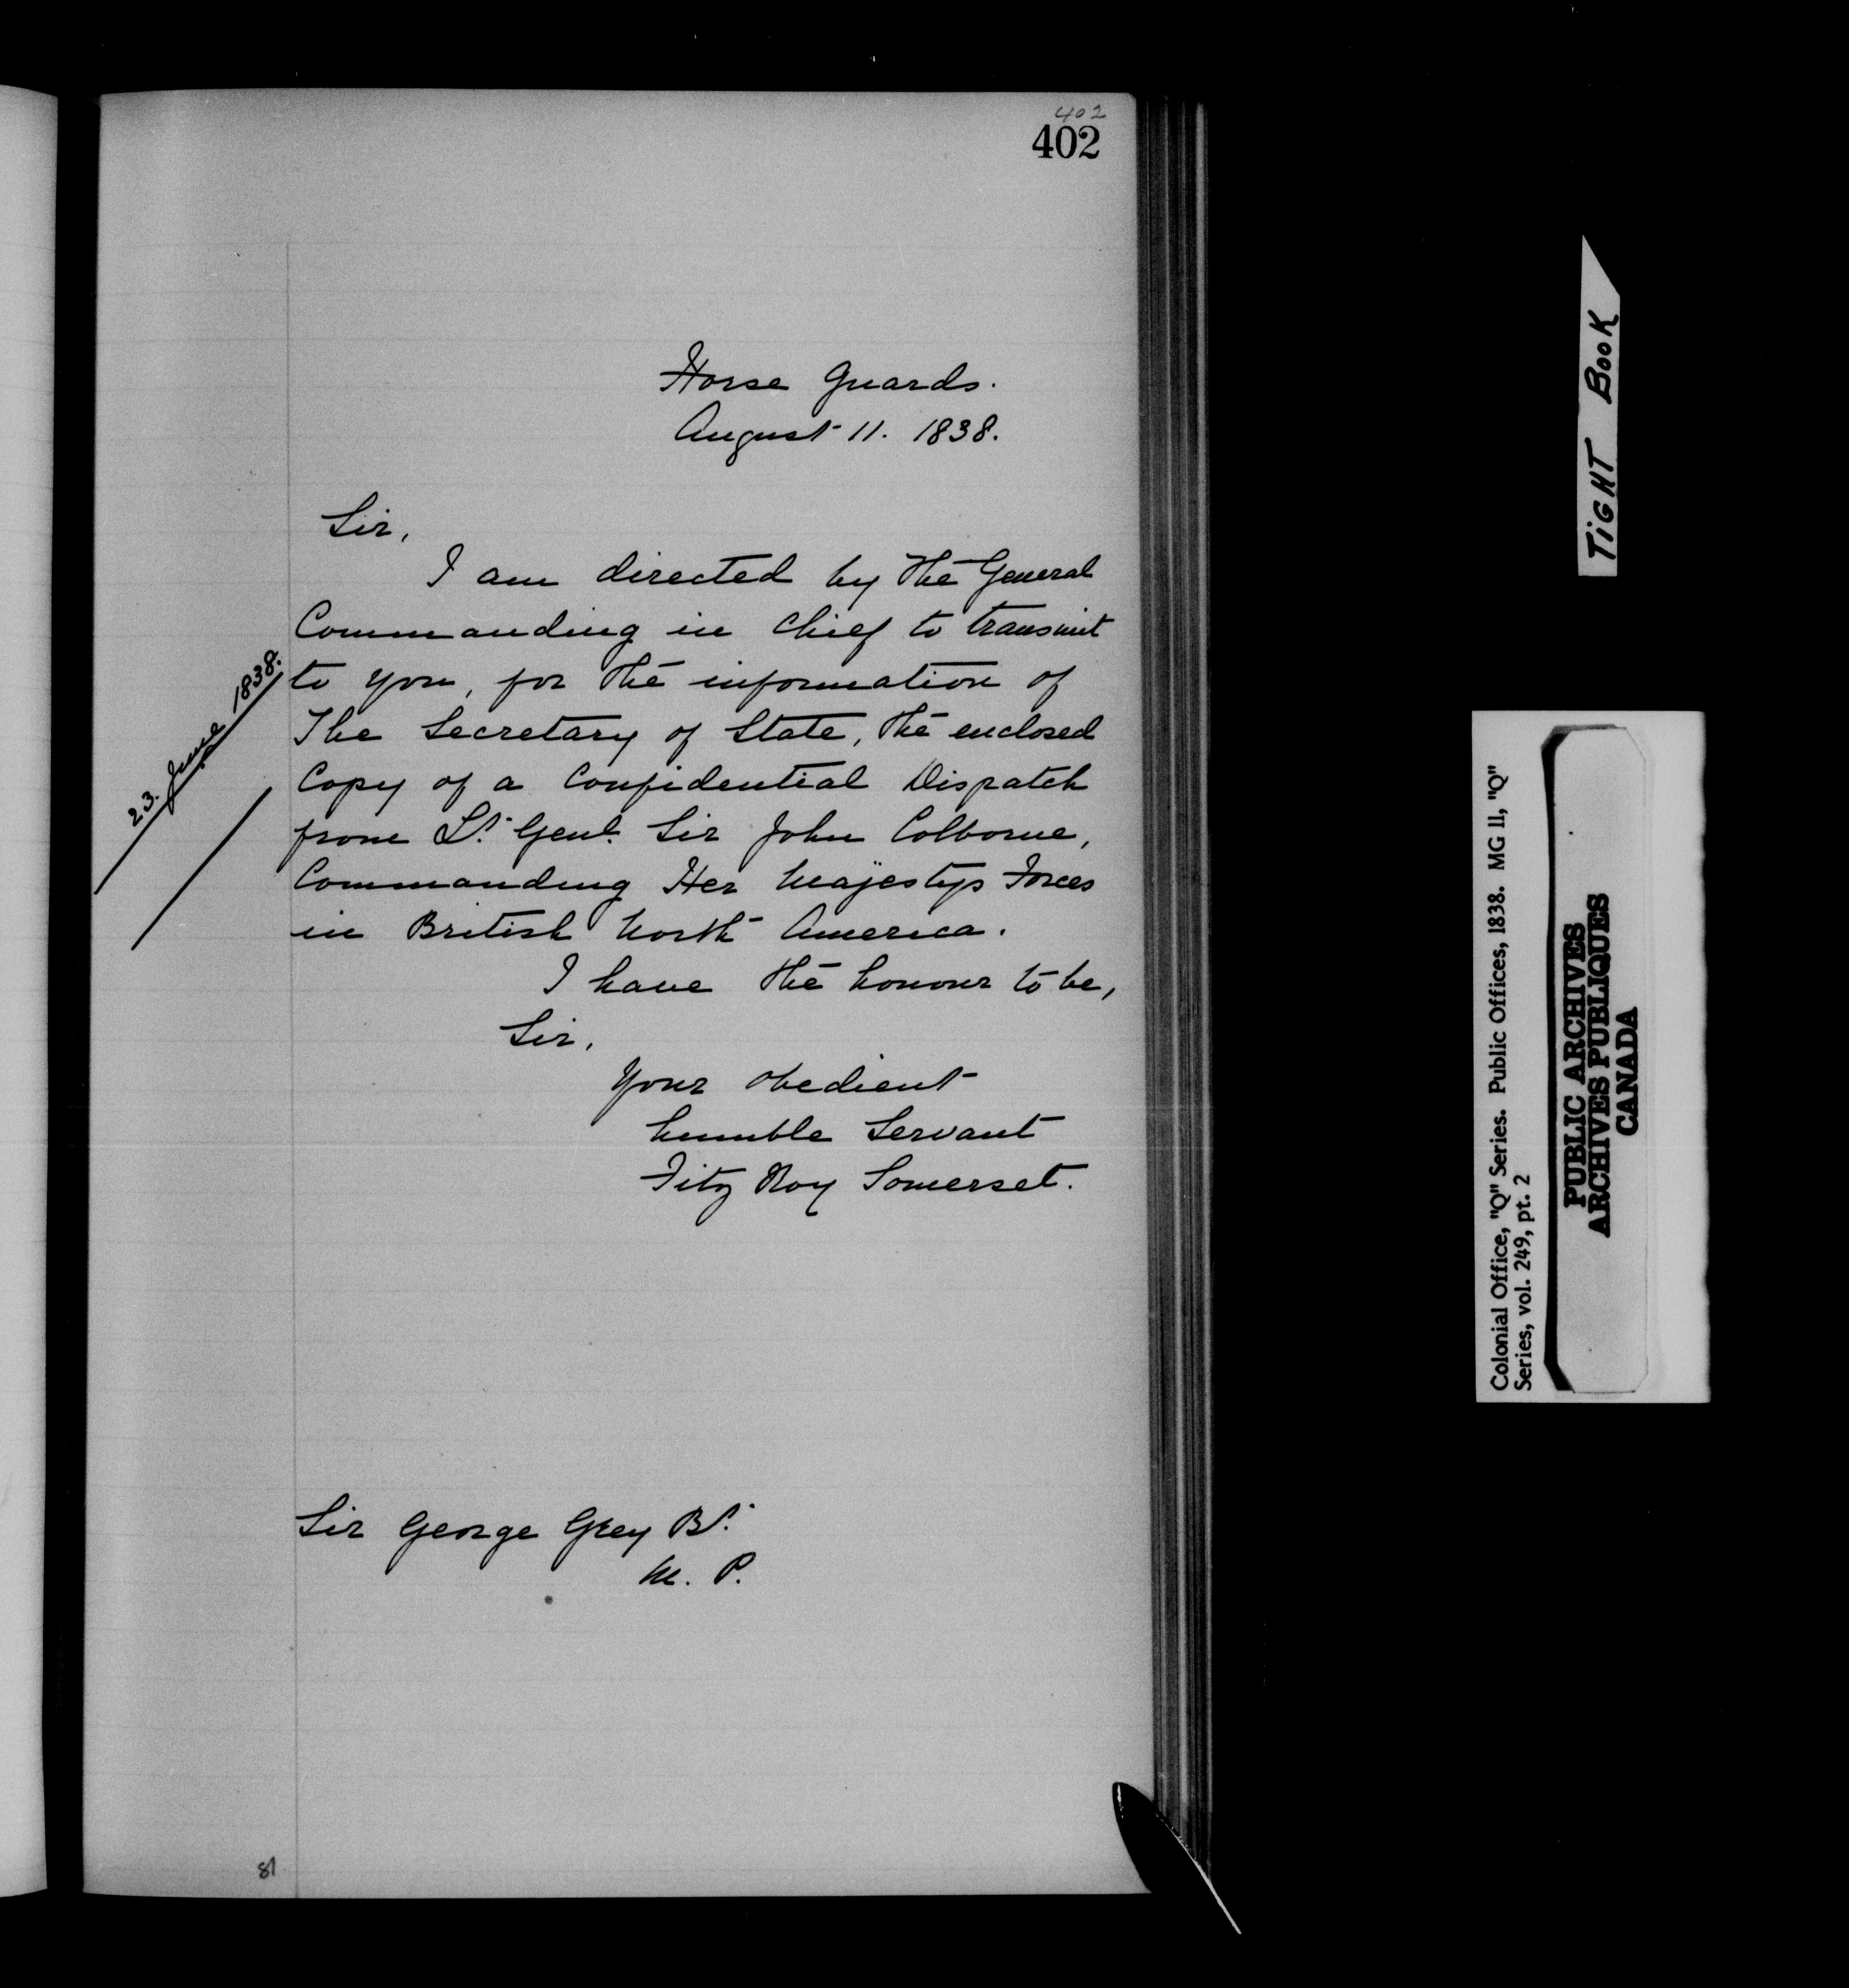 402
402
Horse Guards.
August 11. 1838.
Sir,
I am directed by The General
Commanding in Chief to transmit
to you, for the information of
The Secretary of State, the enclosed
Copy of a Confidential Dispatch
from Lt. Genl. Sir John Colborne,
Commanding Her Majesty's Forces
in British North America.
23. June 1838.
I have the honour to be,
Sir,
Your obedient
humble Servant
Fitz Roy Somerset.
Sir George Grey Bt.
M. P.
81
TIGHT BOOK
Colonial Office, "Q" Series. Public Offices, 1838. MG 11, "Q"
Series, vol. 249, pt. 2
PUBLIC ARCHIVES
ARCHIVES PUBLIQUES
CANADA